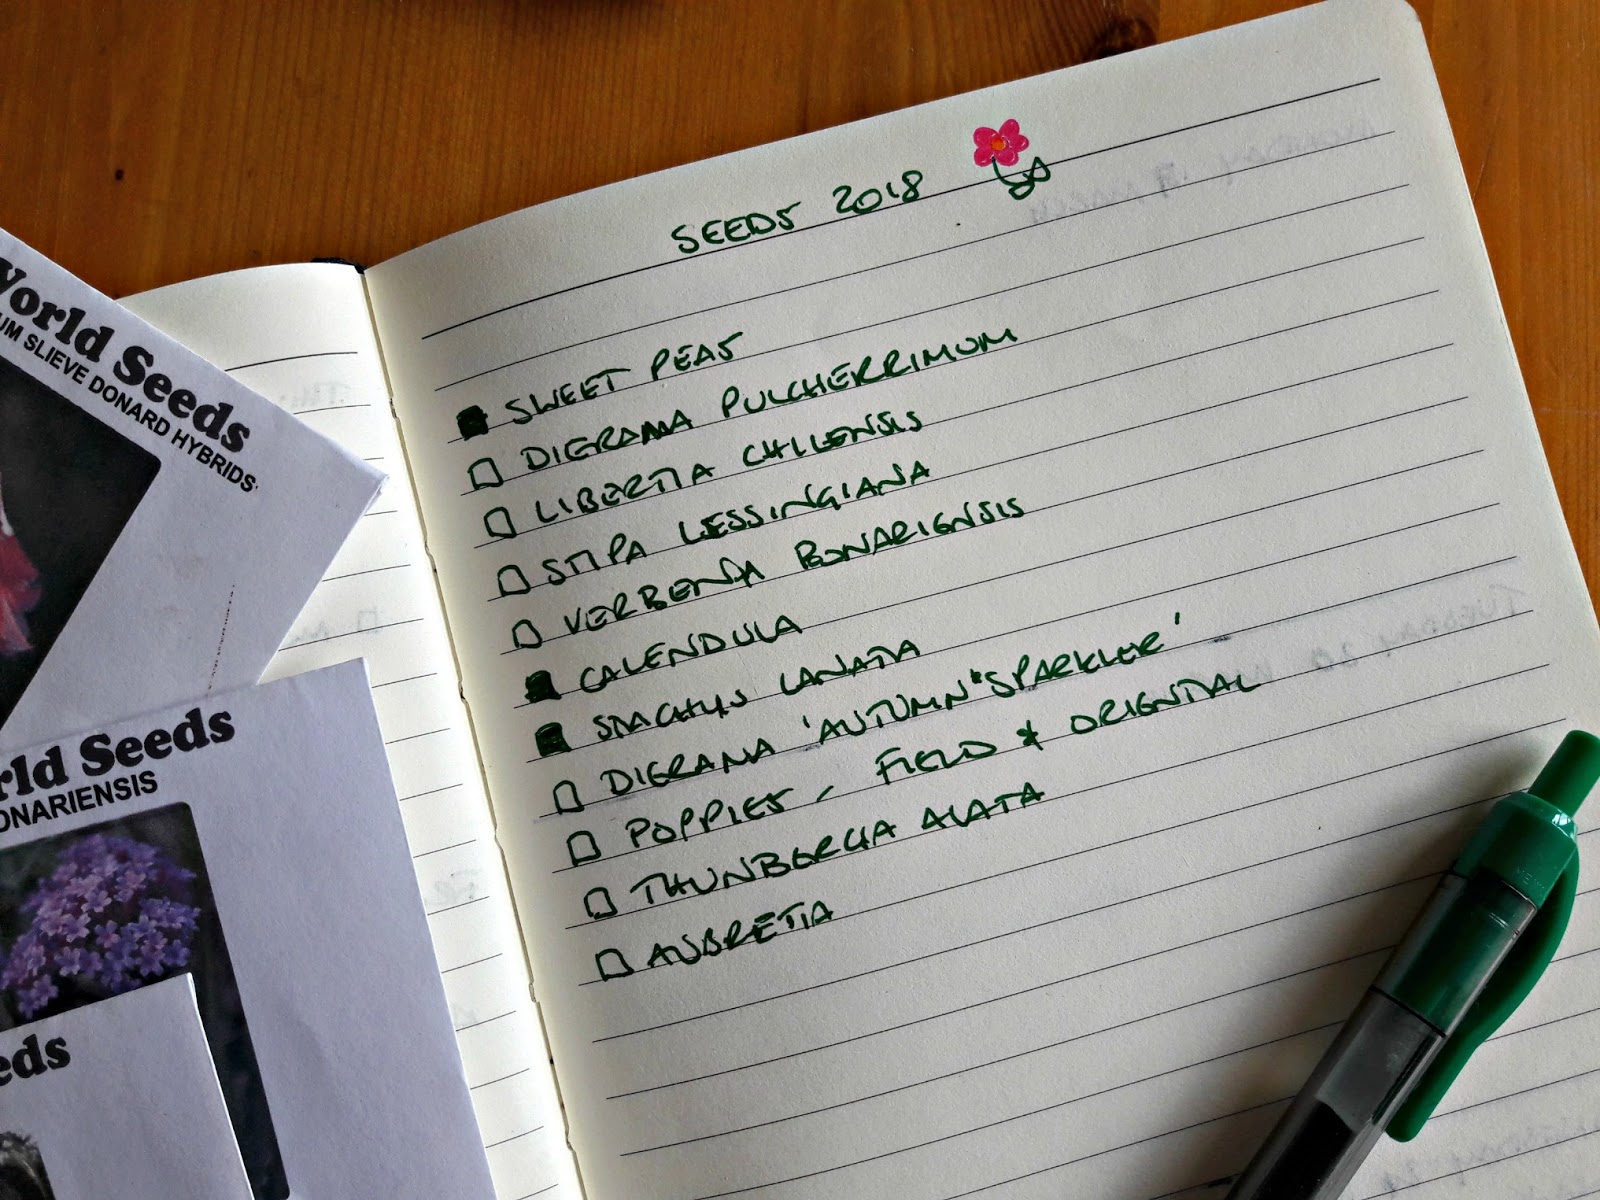 SEEDS 2018
SWEET PEAS
DIERAMA PULCHERRIMUM
LIBERTIA CHILENSIS
STIPA LESSINGIANA
VERBENA BONARIENSIS
CALENDULA
STACHYS LANATA
DIERAMA 'AUTUMN SPARKLER'
POPPIES - FIELD & ORIENTAL
THUNBERGIA ALATA
AUBRETIA
World Seeds
UM SLIEVE DONARD HYBRIDS
rld Seeds
ONARIENSIS
eds